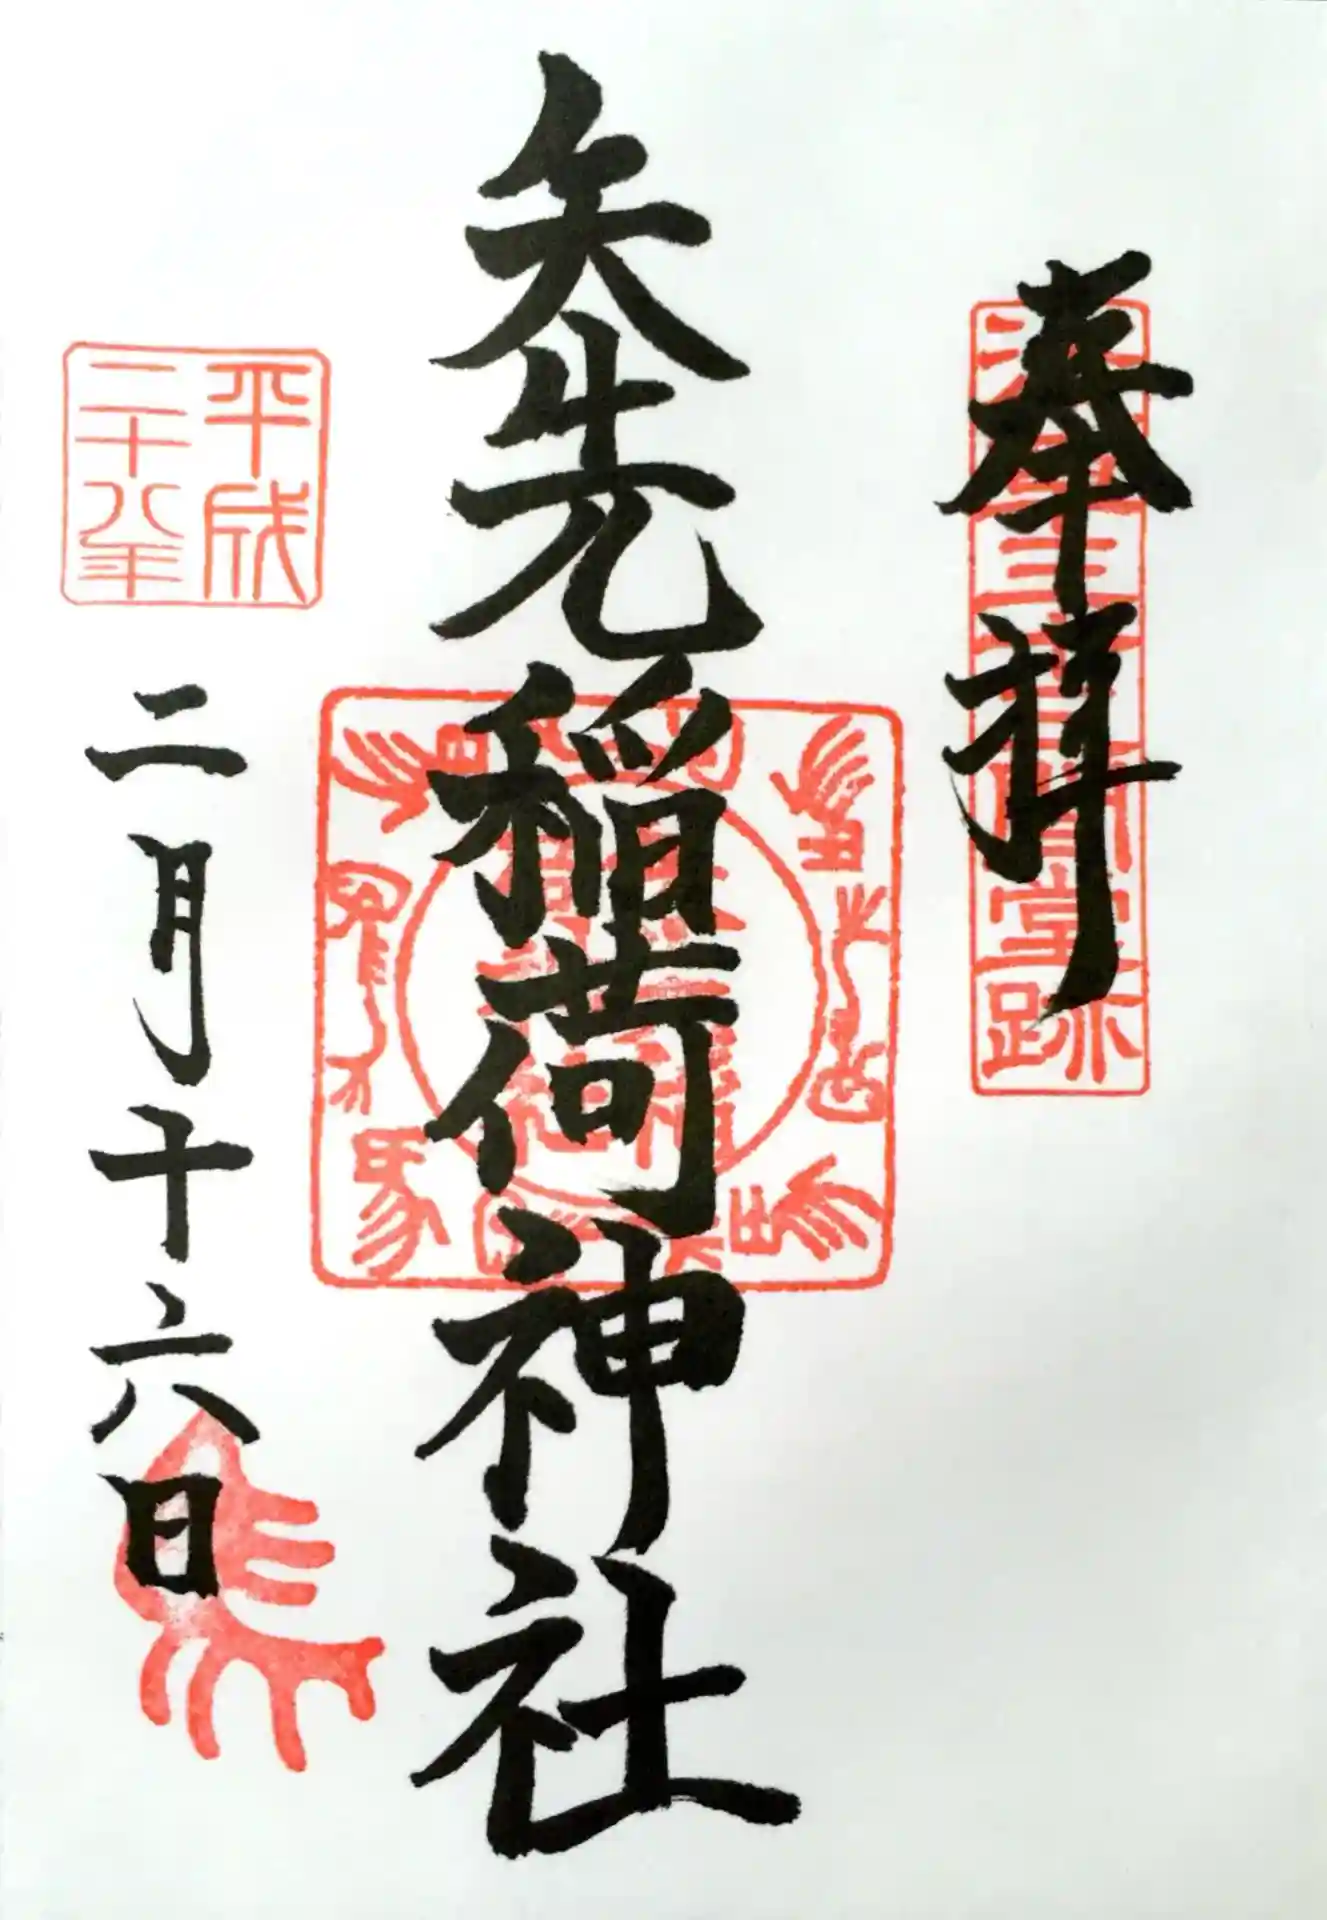 奉拝
浅草三十三間堂跡
矢先稲荷神社
平成
二十八年
二月十六日